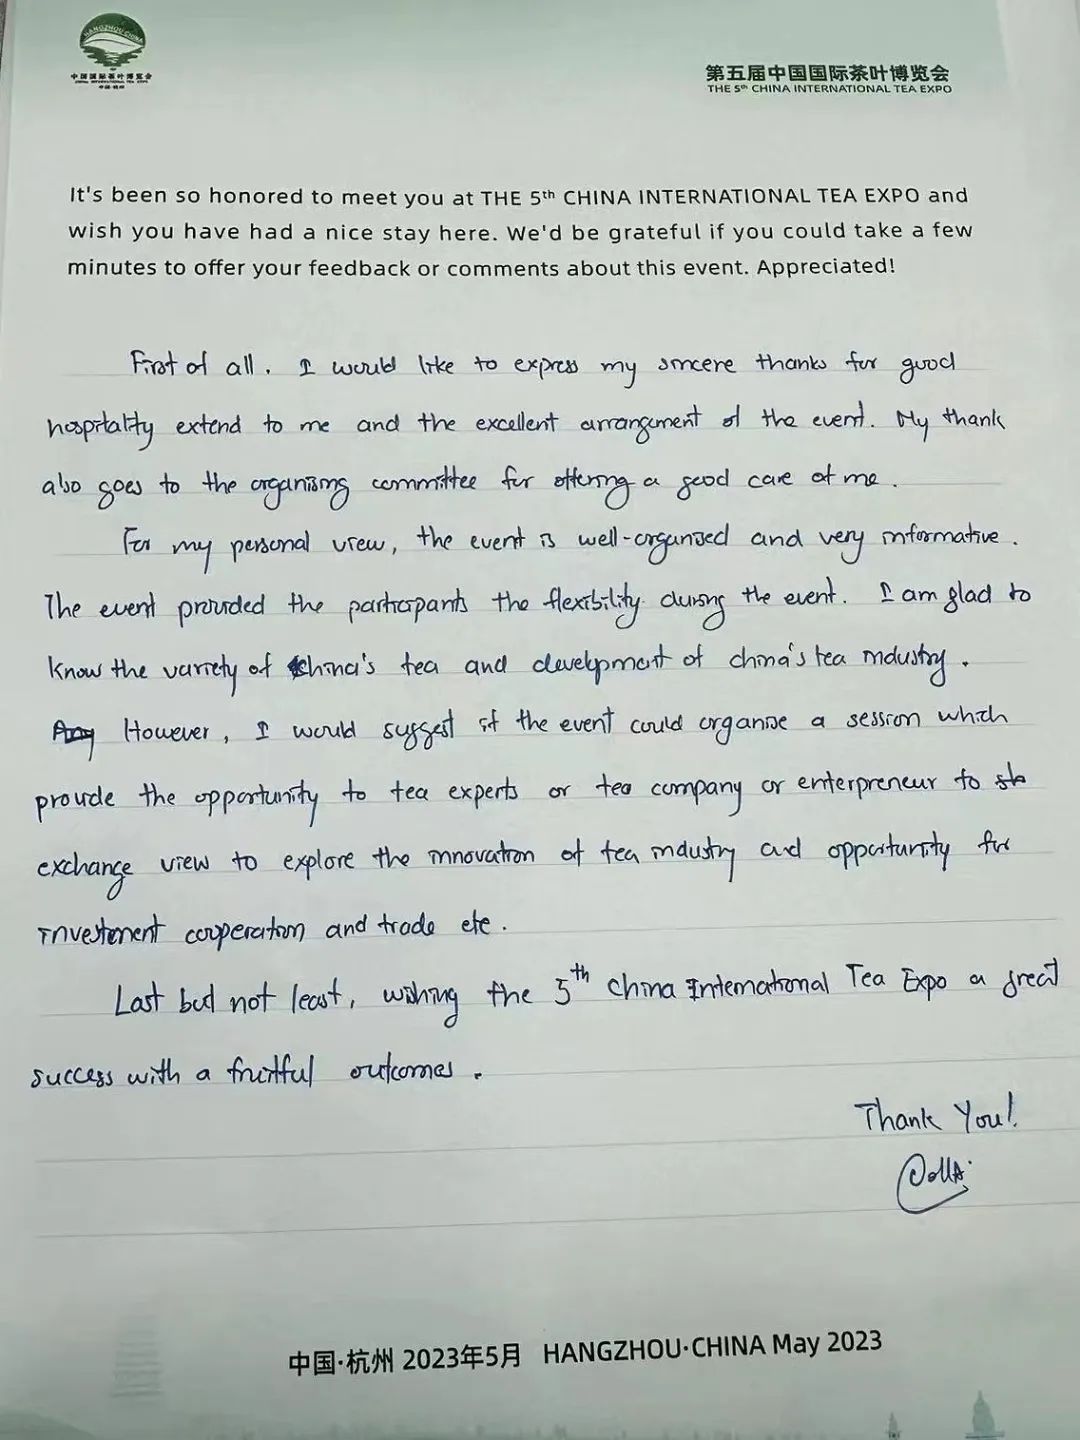 HANGZHOU·CHINA
中国国际茶叶博览会
CHINA INTERNATIONAL TEA EXPO
中国·杭州
第五届中国国际茶叶博览会
THE 5th CHINA INTERNATIONAL TEA EXPO
It's been so honored to meet you at THE 5th CHINA INTERNATIONAL TEA EXPO and
wish you have had a nice stay here. We'd be grateful if you could take a few
minutes to offer your feedback or comments about this event. Appreciated!
First of all, I would like to express my sincere thanks for good
hospitality extend to me and the excellent arrangement of the event. My thank
also goes to the organising committee for offering a good care of me.
For my personal view, the event is well-organised and very informative.
The event provided the participants the flexibility during the event. I am glad to
know the variety of china's tea and development of china's tea industry.
However, I would suggest if the event could organise a session which
provide the opportunity to tea experts or tea company or enterpreneur to
exchange view to explore the innovation of tea industry and opportunity for
investement cooperation and trade etc.
Last but not least, wishing the 5th China International Tea Expo a great
success with a fruitful outcomes.
Thank You!
中国·杭州 2023年5月 HANGZHOU·CHINA May 2023